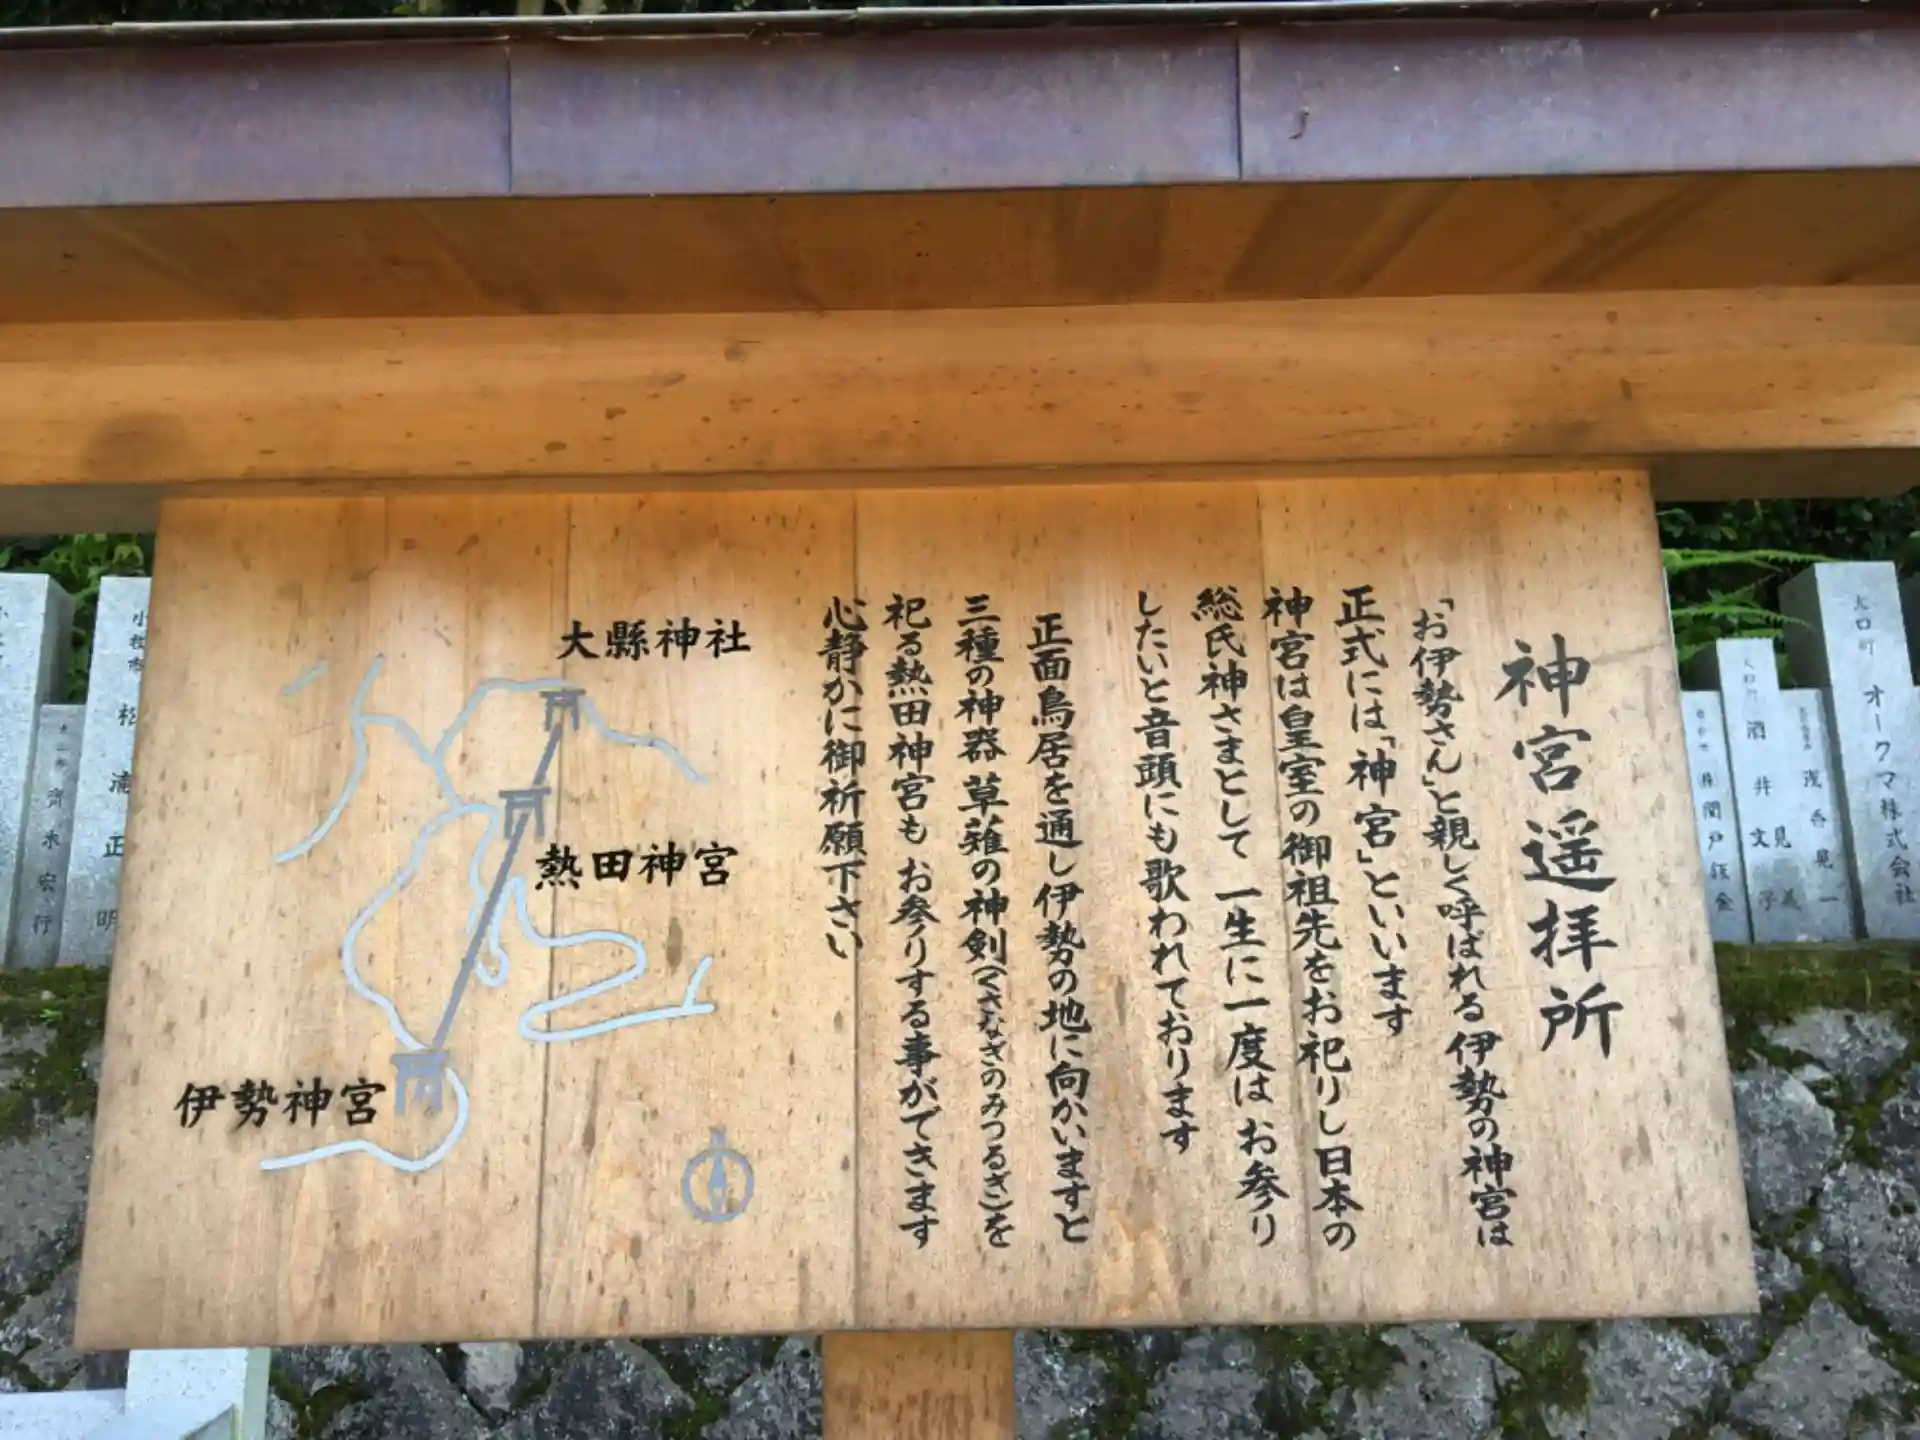 神宮遥拝所
「お伊勢さん」と親しく呼ばれる伊勢の神宮は
正式には「神宮」といいます
神宮は皇室の御祖先をお祀りし日本の
総氏神さまとして 一生に一度は お参り
したいと音頭にも歌われております
正面鳥居を通し伊勢の地に向かいますと
三種の神器 草薙の神剣(くさなぎのみつるぎ)を
祀る熱田神宮も お参りする事ができます
心静かに御祈願下さい
大縣神社
熱田神宮
伊勢神宮
大口町 オークマ株式会社
酒井文子